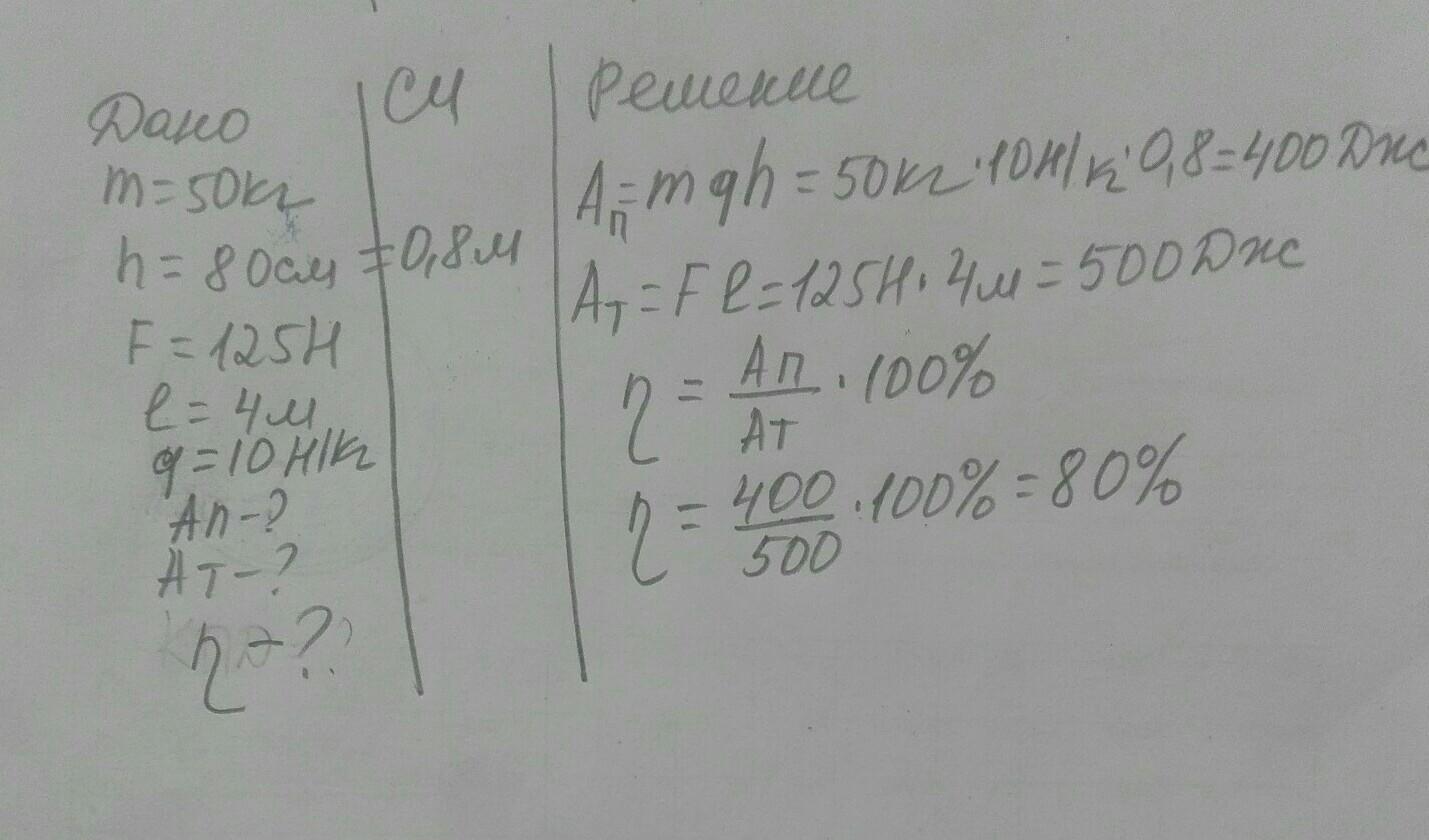 Дано
m=50кг
h=80см
F=125Н
l=4м
g=10Н/кг
Ап-?
Ат-?
η-?
СИ
=0,8м
Решение
Aп=mgh=50кг·10Н/кг·0,8=400Дж
Aт=Fl=125Н·4м=500Дж
η=Ап/Ат·100%
η=400/500·100%=80%